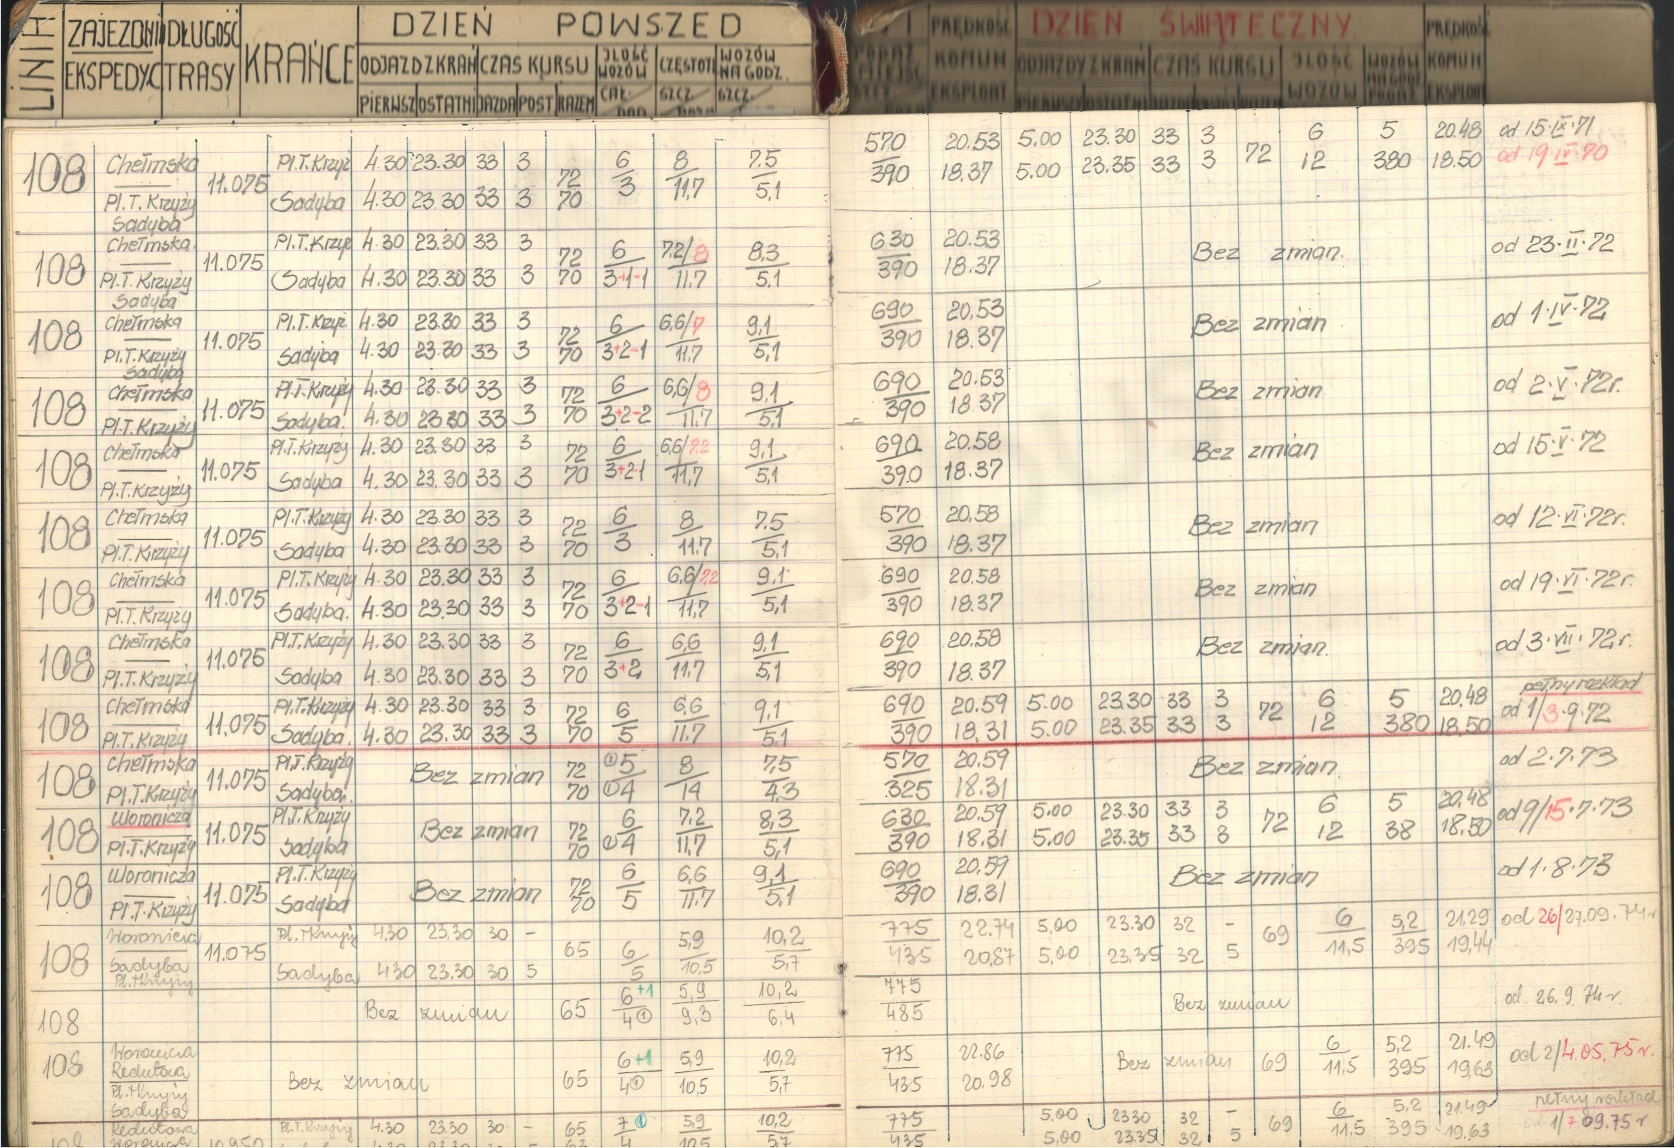 LINIA ZAJEZDNI DŁUGOŚĆ KRAŃCE DZIEŃ POWSZED DZIEŃ ŚWIĄTECZNY
EKSPEDYC TRASY ODJAZD Z KRAŃ CZAS KURSU ILOŚĆ WOZÓW CZĘSTOTL WOZÓW NA GODZ. PRĘDKOŚĆ KOMUN EKSPLOAT ODJAZDY Z KRAŃ CZAS KURSU ILOŚĆ WOZÓW PRĘDKOŚĆ KOMUN EKSPLOAT
PIERWSZ OSTATNI JAZDA POST RAZEM CAŁ. SZCZ. SZCZ.
108 Chełmska 11.075 Pl.T.Krzyż 4.30 23.30 33 3 72 6 8 7.5 570 20.53 5.00 23.30 33 3 72 6 5 20.48 od 15.IX.71
Pl.T. Krzyży Sadyba 4.30 23.30 33 3 70 3 11,7 5,1 390 18.37 5.00 23.35 33 3 12 380 18.50 od 19.IV.70
Sadyba
108 Chełmska 11.075 Pl.T.Krzyż 4.30 23.30 33 3 72 6 7.2/8 8,3 630 20.53 Bez zmian. od 23.II.72
Pl.T. Krzyży Sadyba 4.30 23.30 33 3 70 3+1-1 11.7 5,1 390 18.37
Sadyba
108 Chełmska 11.075 Pl.T.Krzyż 4.30 23.30 33 3 72 6 6,6/7 9,1 690 20.53 Bez zmian od 1.IV.72
Pl.T.Krzyży Sadyba 4.30 23.30 33 3 70 3+2-1 11,7 5,1 390 18.37
Sadyba
108 Chełmska 11.075 Pl.T.Krzyży 4.30 23.30 33 3 72 6 6,6/8 9,1 690 20.53 Bez zmian od 2.V.72r.
Pl.T.Krzyży Sadyba. 4.30 23.30 33 3 70 3+2-2 11.7 5,1 390 18.37
108 Chełmska 11.075 Pl.T.Krzyży 4.30 23.30 33 3 72 6 6,6/7.2 9,1 690 20.58 Bez zmian od 15.V.72
Pl.T.Krzyży Sadyba 4.30 23.30 33 3 70 3+2-1 11,7 5,1 390 18.37
108 Chełmska 11.075 Pl.T.Krzyży 4.30 23.30 33 3 72 6 8 7.5 570 20.58 Bez zmian od 12.VI.72r.
Pl.T.Krzyży Sadyba 4.30 23.30 33 3 70 3 11.7 5,1 390 18.37
108 Chełmska 11.075 Pl.T.Krzyży 4.30 23.30 33 3 72 6 6,6/7.2 9,1 690 20.58 Bez zmian od 19.VI.72r.
Pl.T.Krzyży Sadyba. 4.30 23.30 33 3 70 3+2-1 11,7 5,1 390 18.37
108 Chełmska 11.075 Pl.T.Krzyży 4.30 23.30 33 3 72 6 6,6 9,1 690 20.58 Bez zmian. od 3.VII.72r.
Pl.T.Krzyży Sadyba 4.30 23.30 33 3 70 3+2 11,7 5,1 390 18.37
pełny rozkład
108 Chełmska 11.075 Pl.T.Krzyży 4.30 23.30 33 3 72 6 6,6 9,1 690 20.59 5.00 23.30 33 3 72 6 5 20.48 od 1/3.9.72
Pl.T.Krzyży Sadyba. 4.30 23.30 33 3 70 5 11.7 5.1 390 18.31 5.00 23.35 33 3 12 380 18,50
108 Chełmska 11.075 Pl.T.Krzyży Bez zmian 72 ①5 8 7,5 570 20.59 Bez zmian. od 2.7.73
Pl.T.Krzyży Sadyba. 70 ①4 14 4.3 325 18.31
108 Woronicza 11.075 Pl.T.Krzyży Bez zmian 72 6 7.2 8,3 630 20.59 5.00 23.30 33 3 72 6 5 20,48 od 9/15.7.73
Pl.T.Krzyży Sadyba 70 ①4 11,7 5,1 390 18.31 5.00 23.35 33 3 12 38 18.50
108 Woronicza 11.075 Pl.T.Krzyży Bez zmian 72 6 6,6 9,1 690 20.59 Bez zmian od 1.8.73
Pl.T.Krzyży Sadyba 70 5 11.7 5.1 390 18.31
108 Woronicza 11.075 Pl.T.Krzyży 4.30 23.30 30 - 65 6 5,9 10,2 775 22.74 5,00 23.30 32 - 69 6 5,2 21.29 od 26/27.09.74r
Sadyba Sadyba 4.30 23.30 30 5 5 10,5 5,7 435 20,87 5,00 23,35 32 5 11,5 395 19,44
Pl.T.Krzyży
108 Bez zmian 65 6+1 5,9 10,2 775 Bez zmian od. 26.9.74r.
4① 9,3 6,4 485
108 Woronicza Bez zmian 65 6+1 5,9 10,2 775 22.86 Bez zmian 69 6 5,2 21.49 od 2/4.05.75r.
Redutowa 4① 10,5 5,7 435 20.98 11,5 395 19,63
Pl.T.Krzyży
Sadyba
pełny rozkład
108 Redutowa Pl.T.Krzyży 4.30 23.30 30 - 65 7① 5,9 10,2 775 5,00 23.30 32 - 69 6 5,2 21.49 1/7 09.75r
Woronicza 10.950 4 10,5 5,7 435 5,00 23.35 32 5 11.5 395 19,63